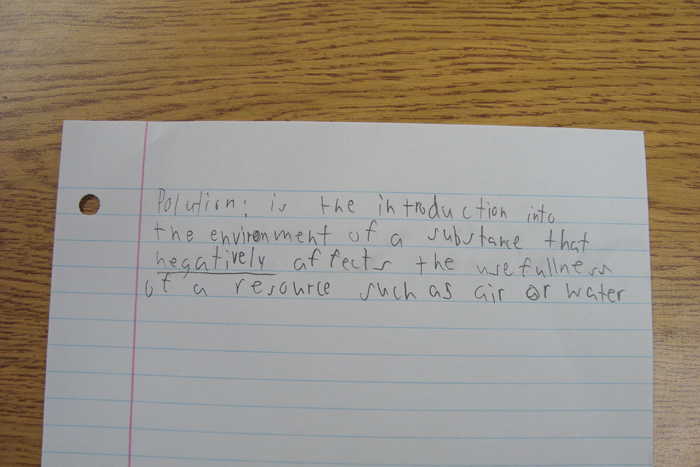 Polution: is the introduction into
the environment of a substance that
negatively affects the usefullness
of a resource such as air or water